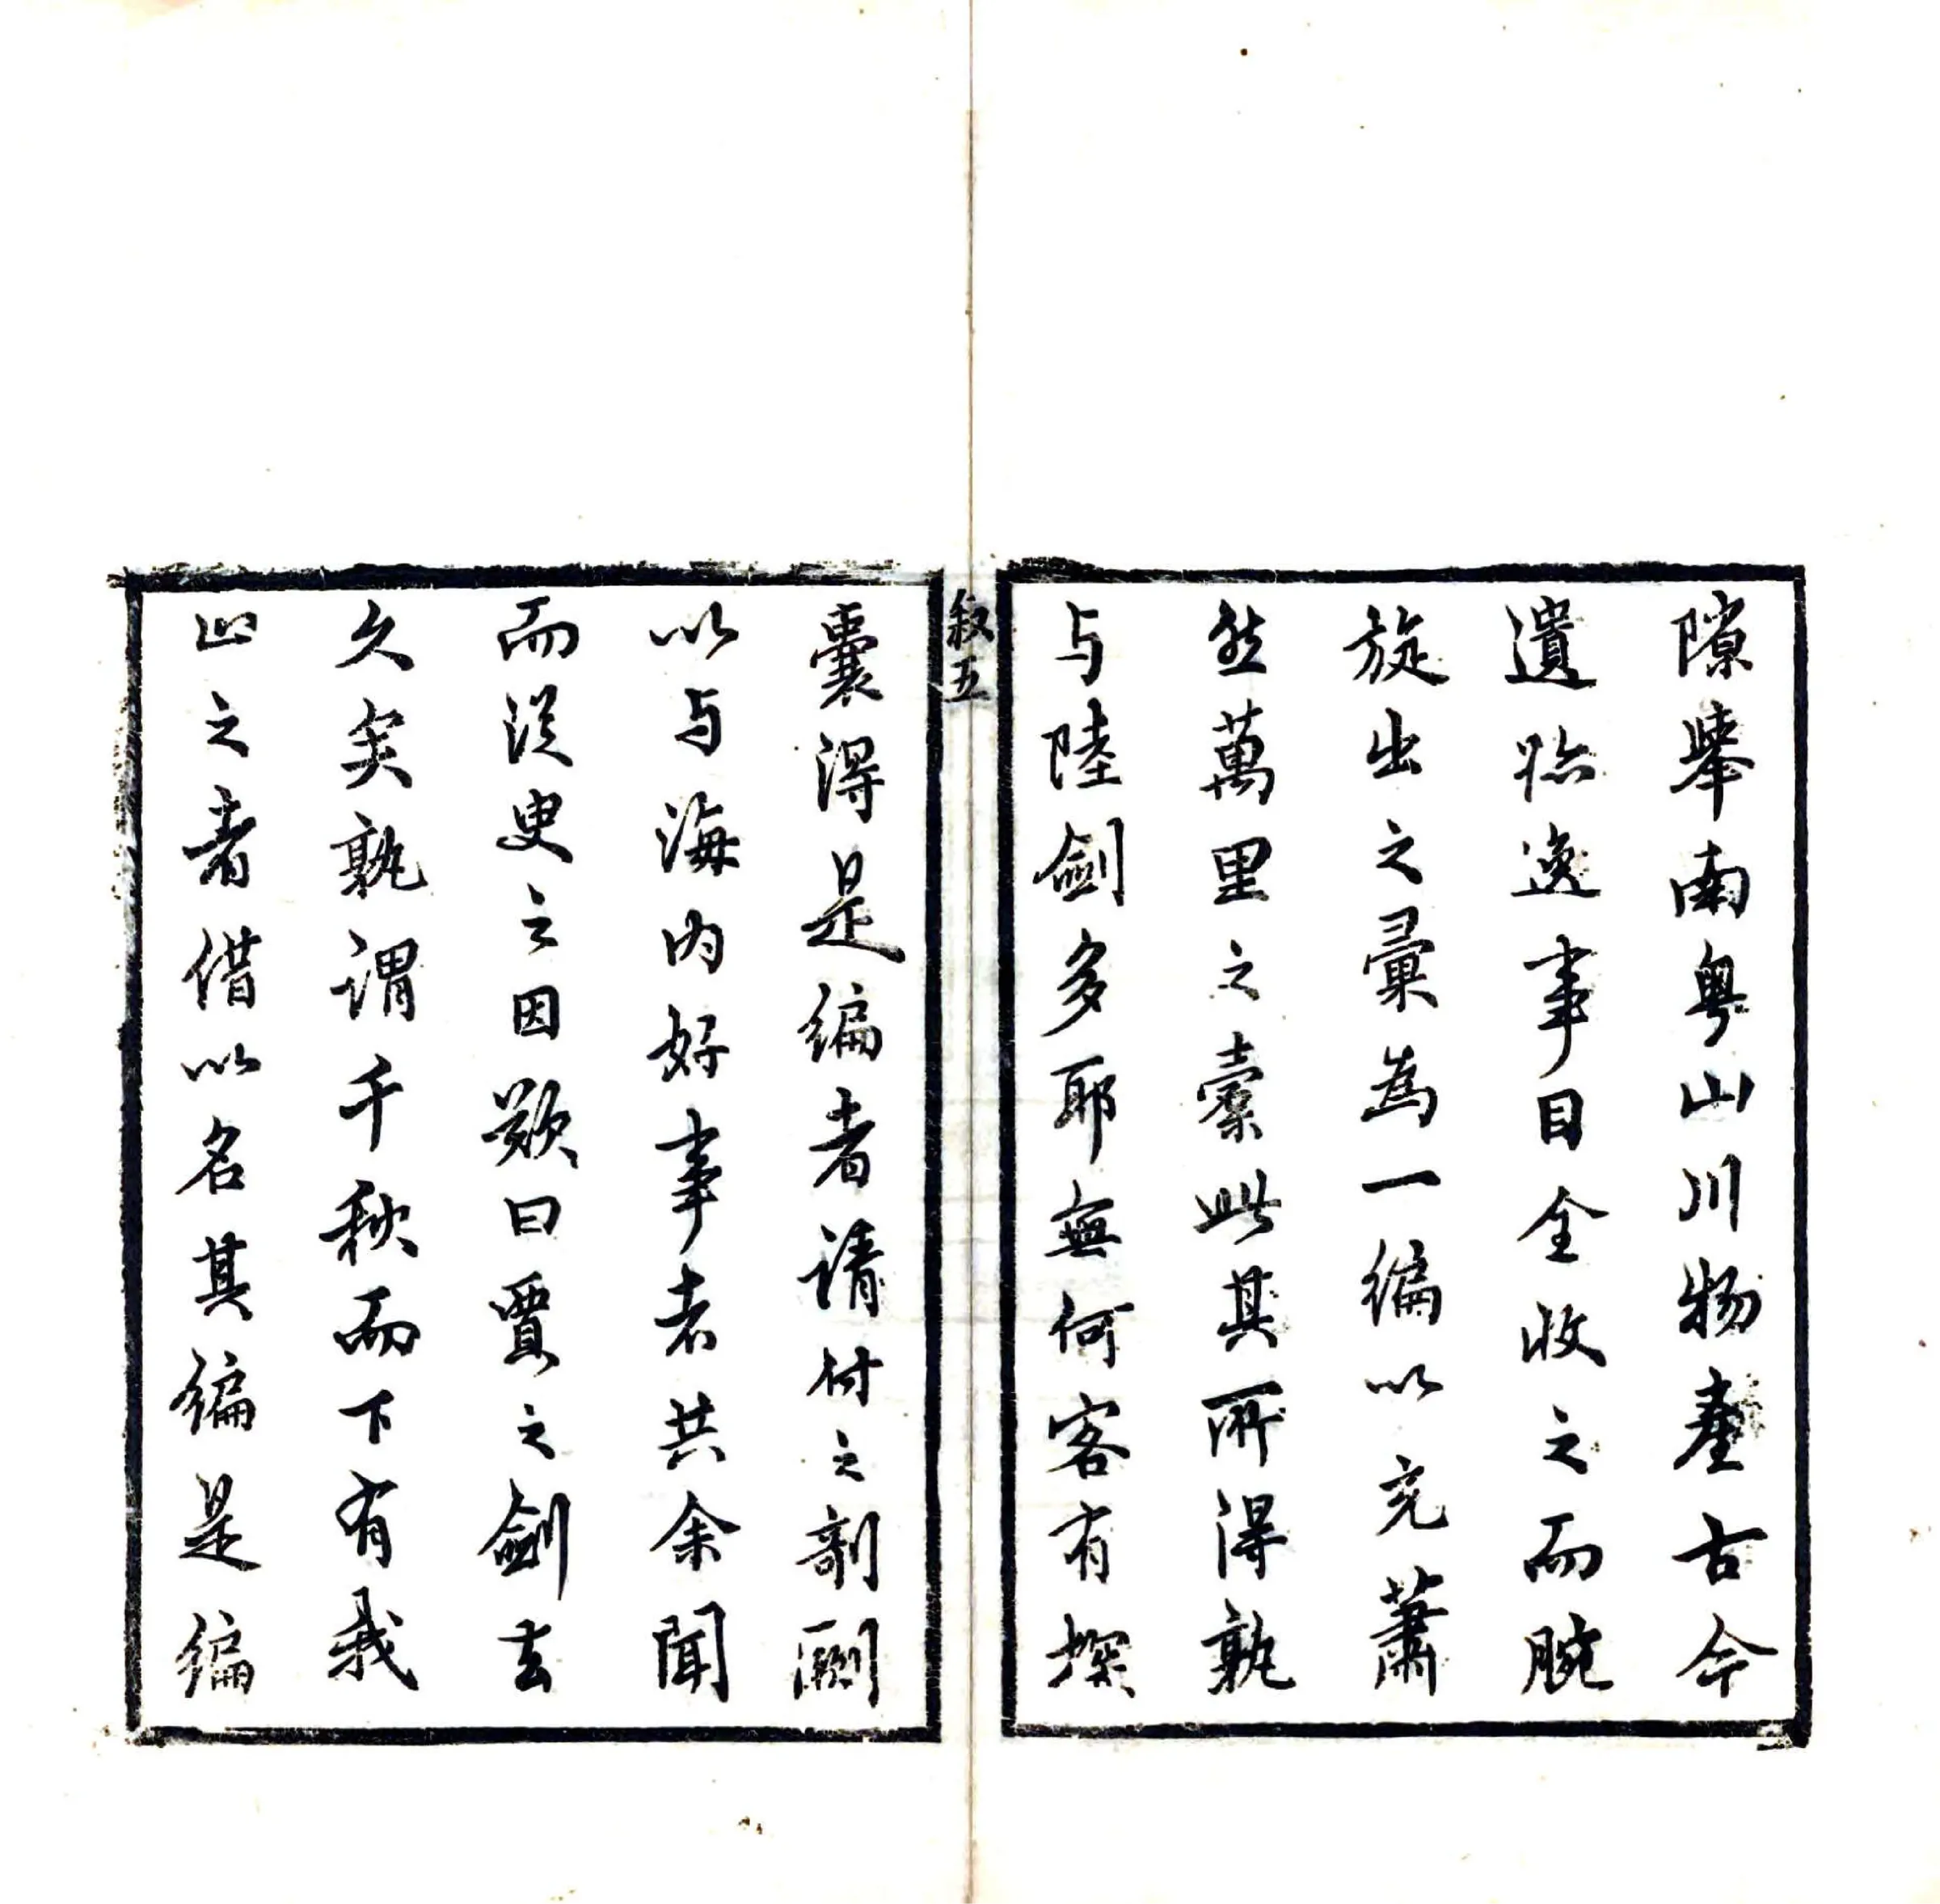 隙舉南粵山川物産古今
遺跡逸事目全收之而腕
旋出之彙為一編以充蕭
然萬里之橐此其所得孰
与陸劍多耶無何客有探
叙五
囊得是編者請付之剞劂
以与海内好事者共余聞
而從叟之因歎曰賈之劍去
久矣孰謂千秋而下有我
止之者借以名其編是編